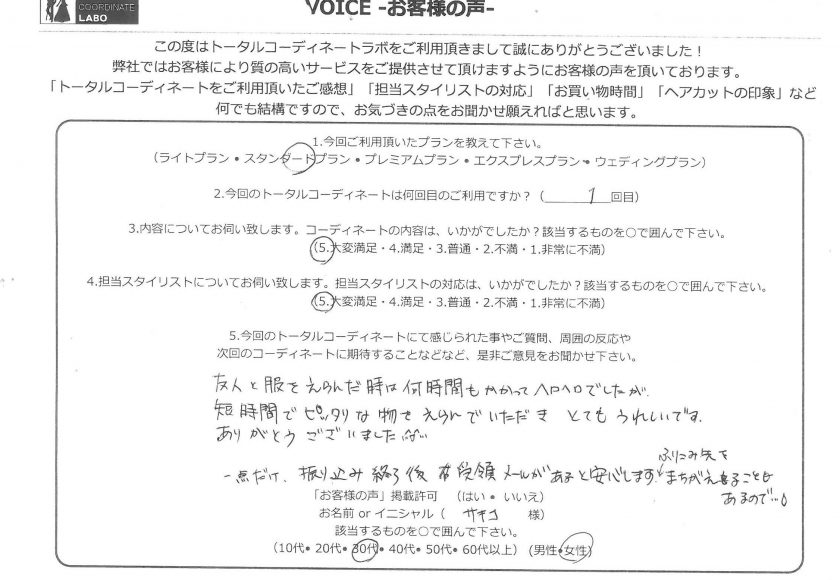 COORDINATE
LABO
VOICE -お客様の声-
この度はトータルコーディネートラボをご利用頂きまして誠にありがとうございました！
弊社ではお客様により質の高いサービスをご提供させて頂けますようにお客様の声を頂いております。
「トータルコーディネートをご利用頂いたご感想」「担当スタイリストの対応」「お買い物時間」「ヘアカットの印象」など
何でも結構ですので、お気づきの点をお聞かせ願えればと思います。
1.今回ご利用頂いたプランを教えて下さい。
（ライトプラン・スタンダードプラン・プレミアムプラン・エクスプレスプラン・ウェディングプラン）
2.今回のトータルコーディネートは何回目のご利用ですか？（ 1 回目）
3.内容についてお伺い致します。コーディネートの内容は、いかがでしたか？該当するものを○で囲んで下さい。
（5.大変満足・4.満足・3.普通・2.不満・1.非常に不満）
4.担当スタイリストについてお伺い致します。担当スタイリストの対応は、いかがでしたか？該当するものを○で囲んで下さい。
（5.大変満足・4.満足・3.普通・2.不満・1.非常に不満）
5.今回のトータルコーディネートにて感じられた事やご質問、周囲の反応や
次回のコーディネートに期待することなどなど、是非ご意見をお聞かせ下さい。
友人と服をえらんだ時は何時間もかかってヘロヘロでしたが
短時間でピッタリな物をえらんでいただき とてもうれしいです。
ありがとうございました
一点だけ、振り込み終了後 受領メールがあると安心します。
ふりこみ先を
まちがえることも
あるので…
「お客様の声」掲載許可 （はい・いいえ）
お名前 or イニシャル（ サチコ 様）
該当するものを○で囲んで下さい。
（10代・20代・30代・40代・50代・60代以上）（男性・女性）